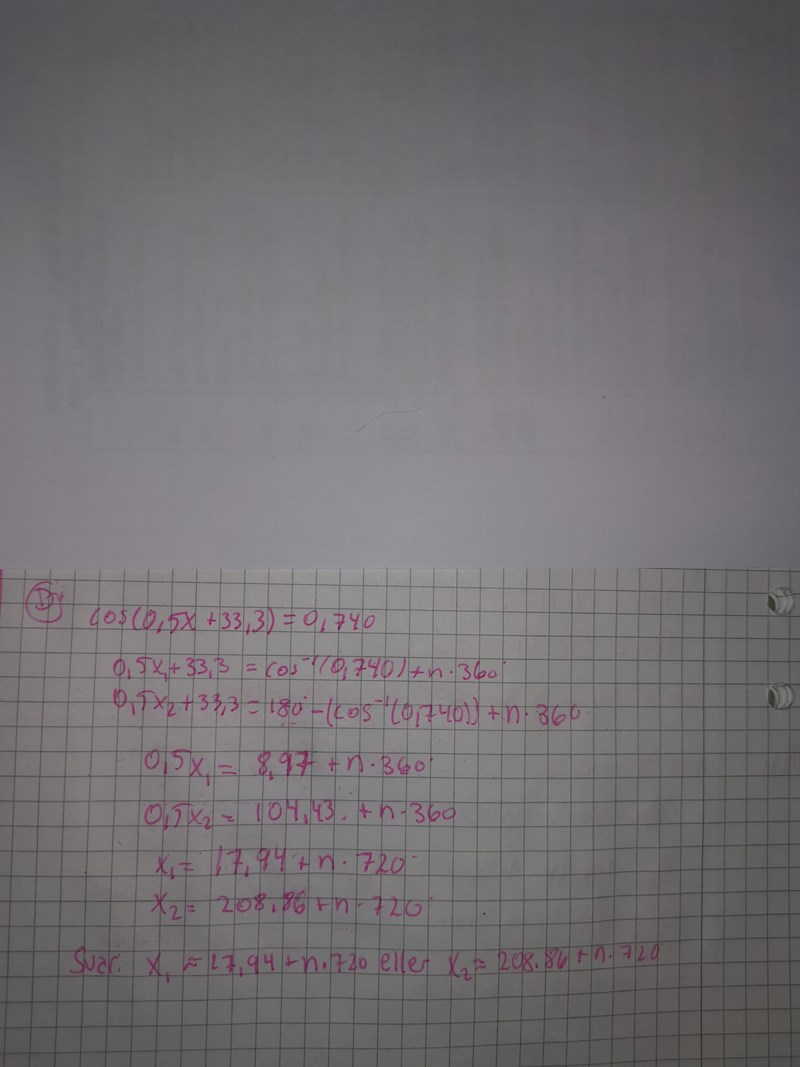 D)
cos(0,5x+33,3)=0,740
0,5x₁+33,3=cos⁻¹(0,740)+n·360°
0,5x₂+33,3=180°-(cos⁻¹(0,740))+n·360
0,5x₁= 8,97 +n·360°
0,5x₂= 104,43. +n·360
x₁= 17,94+n·720°
x₂= 208.86+n·720°
Svar: x₁≈17,94+n.720 eller x₂≈ 208.86+n.720